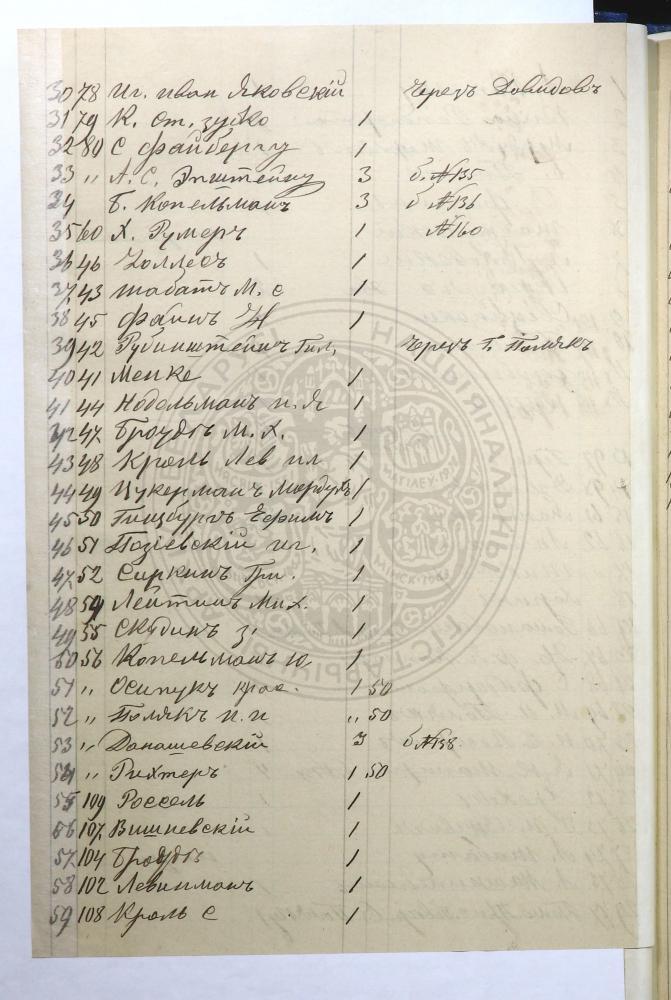 30 78 Иг. иван Яковскій Черезъ Давидовъ
31 79 К. ст. зуско 1
32 80 С файбергу 1
33 " А. С. Эпштейну 3 б. №135
34 Б. Копельманъ 3 б №136
35 60 Х. Румеръ 1 №160
36 46 Цоллесъ 1
37 43 шабатъ М. с 1
38 45 файнъ 1
39 42 Рубинштейнъ Черезъ Г. Полякъ
40 41 Менке 1
41 44 Нодельманъ и. я 1
42 47 Броудъ М. Х. 1
43 48 Кроль Лев ил 1
44 49 Цукерманъ Мордухъ 1
45 50 Гинзбургъ Ефимъ 1
46 51 Позіевскій иг. 1
47 52 Сиркинъ Гри. 1
48 54 Лейтинъ Мих. 1
49 55 Скудинъ з. 1
50 56 Копельманъ ю 1
51 " Осипукъ крас. 1 50
52 " Полякъ и. и " 50
53 " Данашевскій 3 б №138
54 " Рихтеръ 1 50
55 109 Россель 1
56 107 Вишневскій 1
57 104 Броудъ 1
58 102 Левинманъ 1
59 108 Кроль С 1